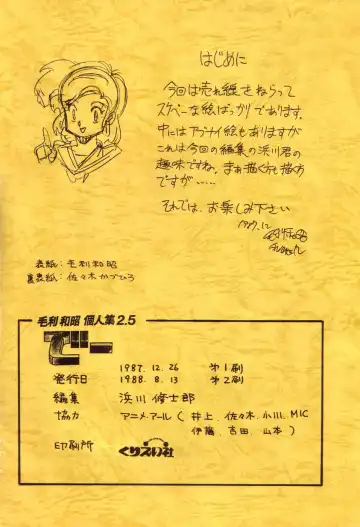 はじめに
今回は売れ線をねらって
スケベな絵ばっかりであります。
中にはアブナイ絵もありますが
これは今回の編集の浜川君の
趣味ですね。まぁ描く方も描く方
ですが……
それでは、お楽しみ下さい
1987.12
表紙:毛利和昭
裏表紙:佐々木かづひろ
毛利和昭 個人集2.5
でー
1987.12.26 第1刷
発行日 1988.8.13 第2刷
編集 浜川修士郎
協力 アニメ・アール(井上、佐々木、小川、MIC
伊藤、吉田、山本)
印刷所 くりえい社